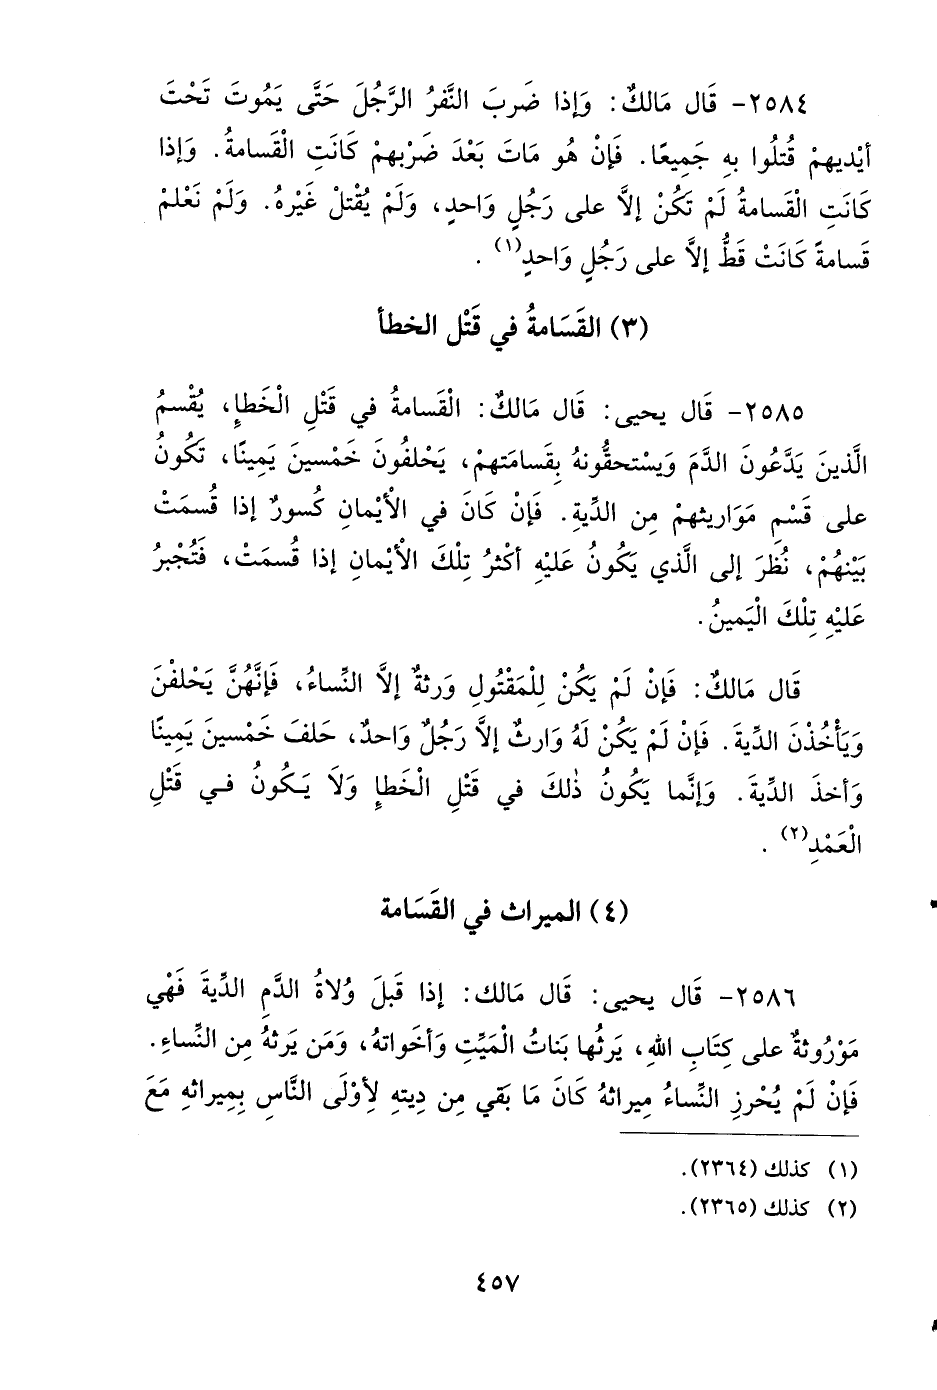 ٢٥٨٤- قَال مَالكٌ: وَإذا ضَربَ النَّفرُ الرَّجُلَ حَتَّى يَمُوتَ تَحْتَ
أيْديهمْ قُتلُوا بهِ جَمِيعًا. فَإنْ هُو مَاتَ بَعْدَ ضَرْبهمْ كَانَتِ الْقَسامةُ. وَإذا
كَانَتِ الْقَسامةُ لَمْ تَكُنْ إلاَّ على رَجُلٍ وَاحدٍ، وَلَمْ يُقْتلْ غَيْرهُ. وَلَمْ نَعْلمْ
قَسامةً كَانَتْ قَطُّ إلاَّ على رَجُلٍ وَاحدٍ(١) .
(٣) القَسَامةُ في قَتْل الخطأ
٢٥٨٥- قَال يحيى: قَال مَالكٌ: الْقَسامةُ في قَتْلِ الْخَطإِ، يُقْسمُ
الَّذينَ يَدَّعُونَ الدَّمَ وَيسْتحقُّونهُ بِقَسامَتهمْ، يَحْلفُونَ خَمْسينَ يَمِينًا، تَكُونُ
على قَسْمِ مَوَاريثهمْ مِن الدِّيةِ. فَإنْ كَانَ في الْأيْمانِ كُسورٌ إذا قُسمَتْ
بَيْنهُمْ، نُظرَ إلى الَّذي يَكُونُ عَليْهِ أكْثرُ تِلْكَ الْأيْمانِ إذا قُسمَتْ، فَتُجْبرُ
عَليْهِ تِلْكَ الْيَمينُ.
قَال مَالكٌ: فَإنْ لَمْ يَكُنْ لِلْمَقْتُولِ وَرثةٌ إلاَّ النِّساءُ، فَإنَّهُنَّ يَحْلفْنَ
وَيَأْخُذْنَ الدِّيةَ. فَإنْ لَمْ يَكُنْ لَهُ وَارثٌ إلاَّ رَجُلٌ وَاحدٌ، حَلفَ خَمْسينَ يَمِينًا
وَأخذَ الدِّيةَ. وَإنَّما يَكُونُ ذٰلكَ في قَتْلِ الْخَطإِ وَلاَ يَكُونُ في قَتْلِ
الْعَمْدِ(٢) .
(٤) الميراث في القَسَامة
٢٥٨٦- قَال يحيى: قَال مَالك: إذا قَبلَ وُلاةُ الدَّمِ الدِّيةَ فَهْي
مَوْرُوثةٌ على كِتَابِ اللهِ، يَرثُها بَناتُ الْمَيِّتِ وَأخَواتهُ، وَمَن يَرثهُ مِن النِّساءِ.
فَإنْ لَمْ يُحْرزِ النِّساءُ مِيراثهُ كَانَ مَا بَقي مِن دِيتهِ لِأوْلَى النَّاسِ بِمِيراثهِ مَعَ
(١) كذلك (٢٣٦٤).
(٢) كذلك (٢٣٦٥).
٤٥٧